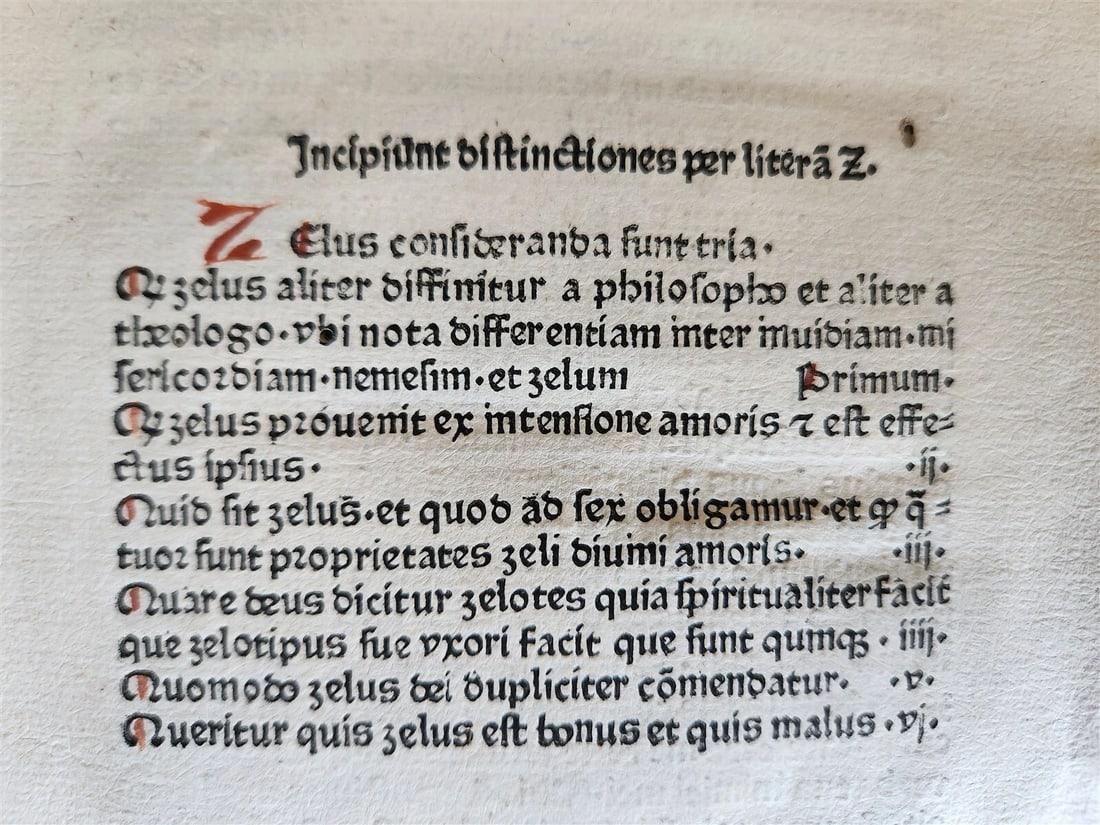 Incipiunt distinctiones per literā Z.
ZElus consideranda sunt tria.
Qꝫ zelus aliter diffinitur a philosopho et aliter a
theologo.vbi nota differentiam inter inuidiam.mi
sericordiam.nemesim.et zelum Primum.
Qꝫ zelus prouenit ex intensione amoris ⁊ est effe⸗
ctus ipsius. .ij.
Quid sit zelus.et quod ad sex obligamur.et ꝙ q̄⸗
tuor sunt proprietates zeli diuini amoris. .iij.
Quare deus dicitur zelotes quia spiritualiter facit
que zelotipus sue vxori facit que sunt quinqꝫ .iiij.
Quomodo zelus dei dupliciter cōmendatur. .v.
Queritur quis zelus est bonus et quis malus .vj.